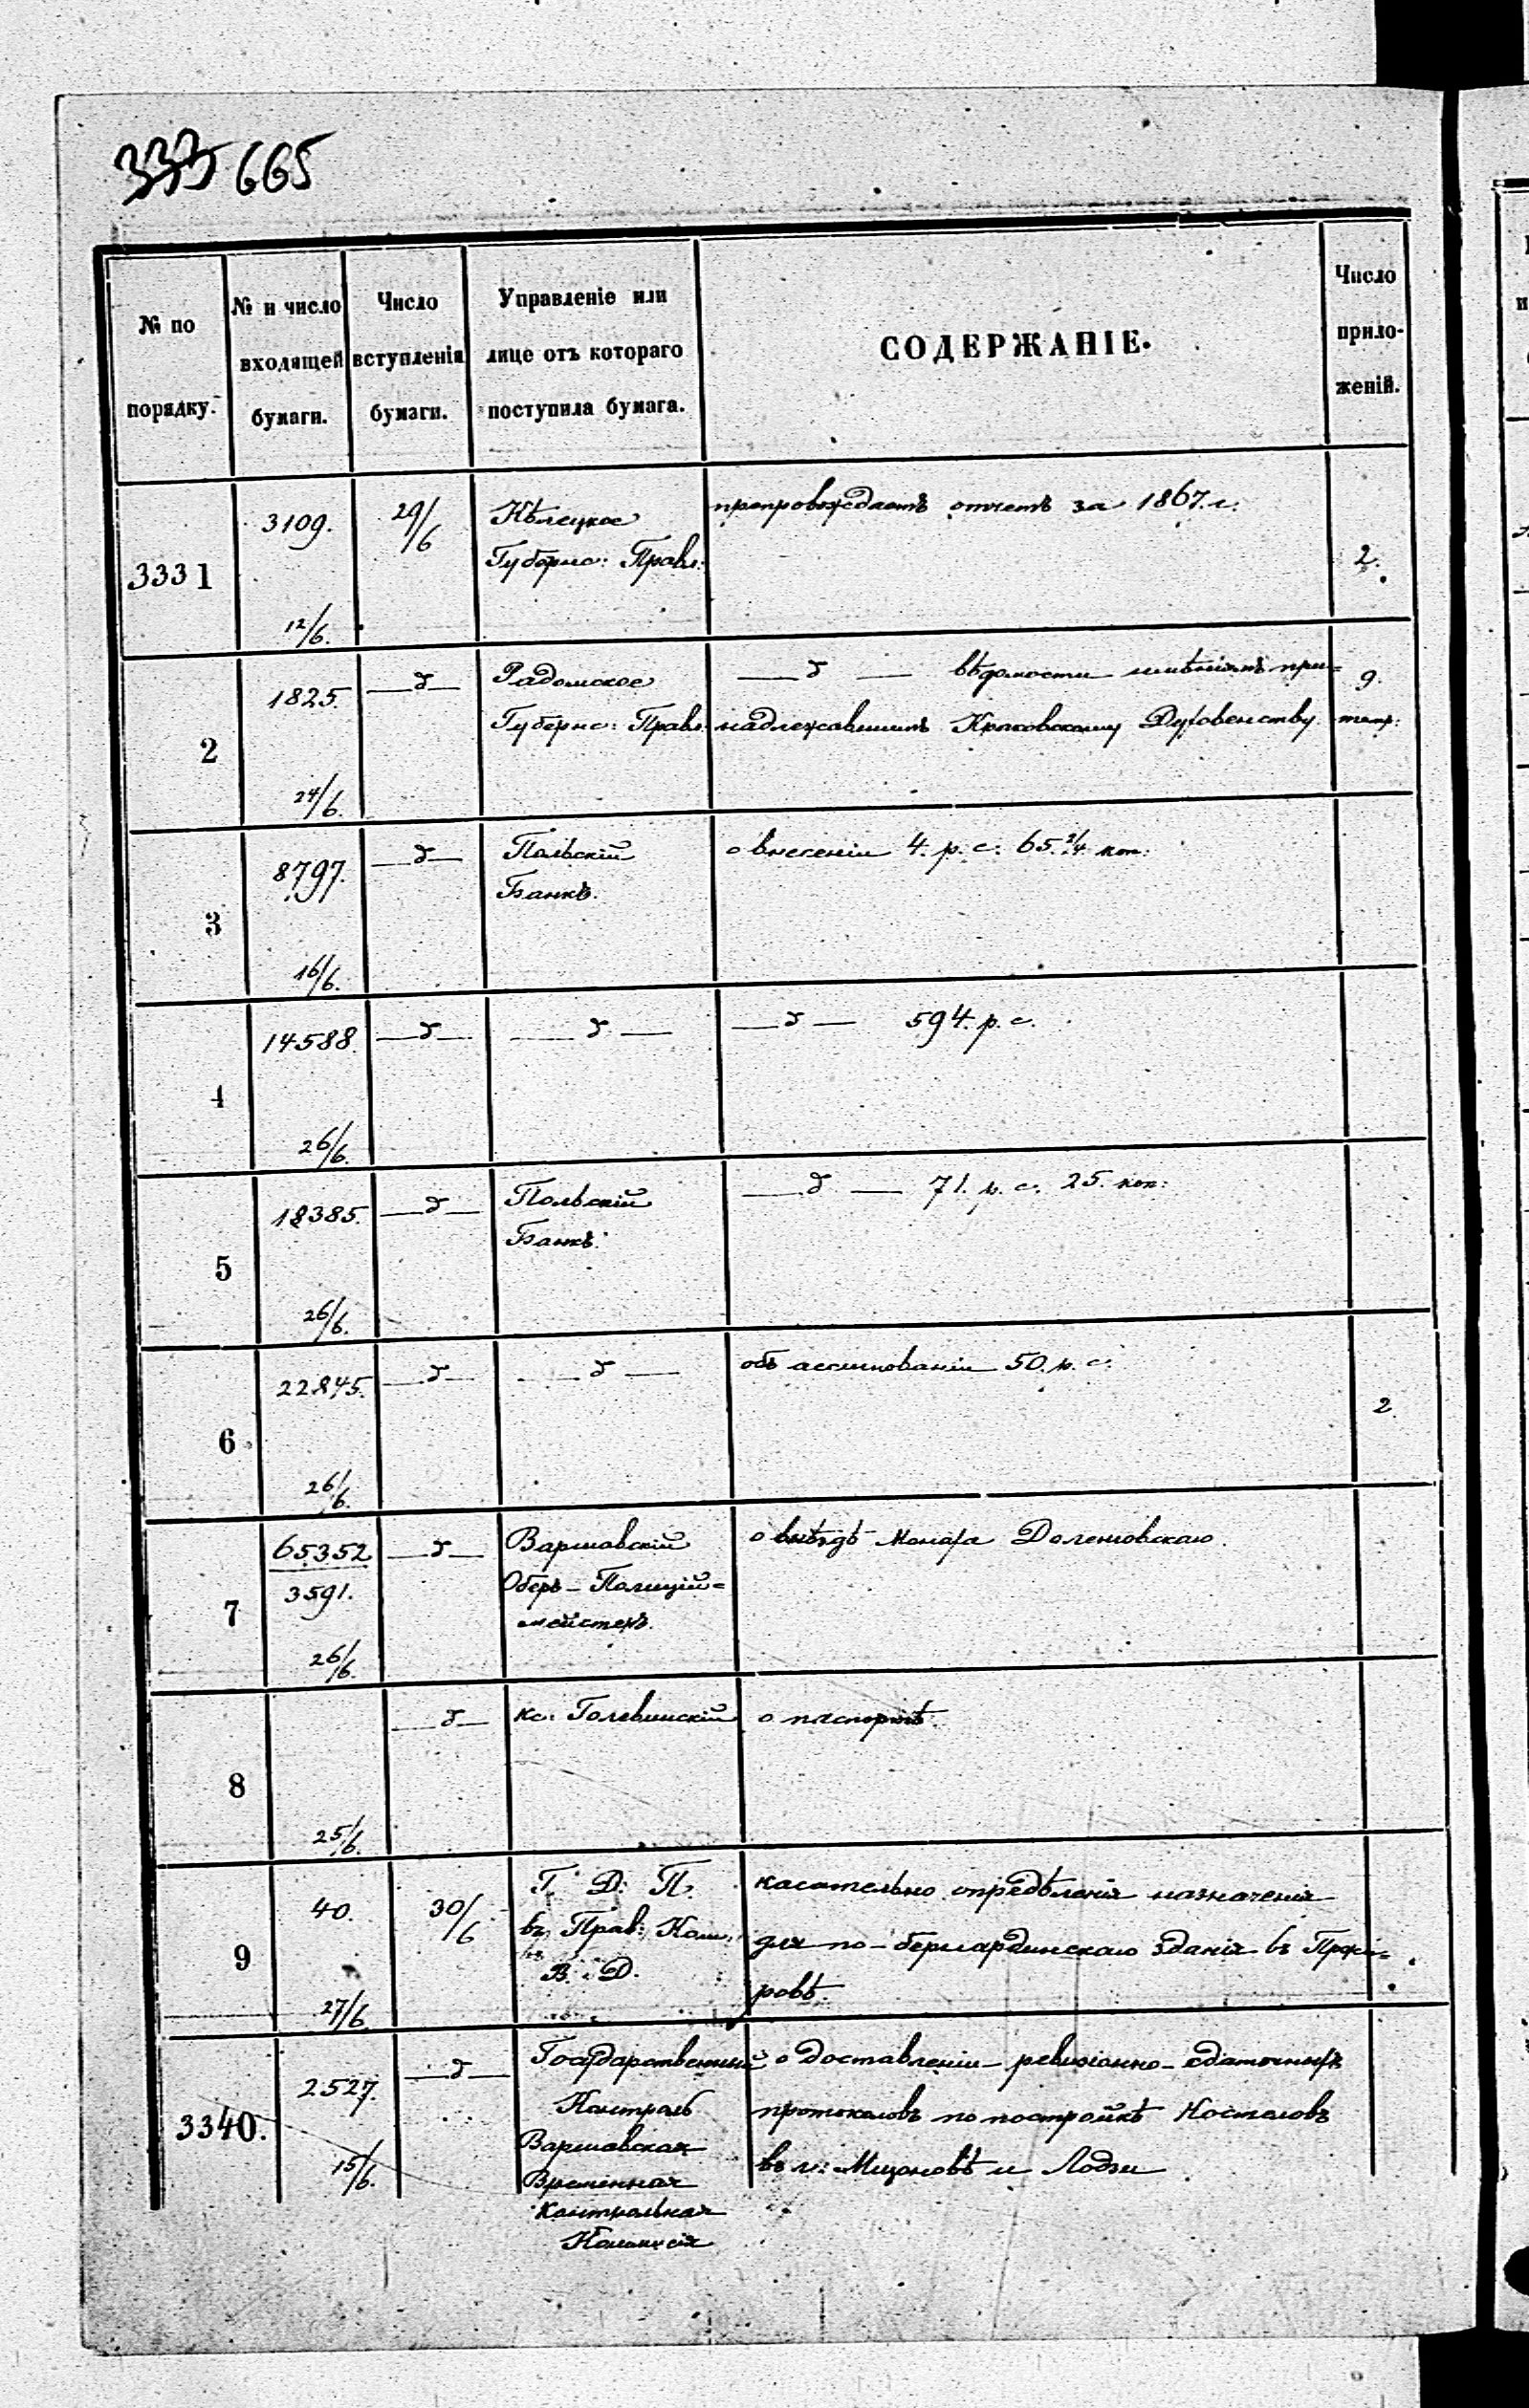 333 665
№ по порядку.
№ и число входящей бумаги.
Число вступленія бумаги.
Управленіе или лице отъ котораго поступила бумага.
СОДЕРЖАНІЕ.
Число приложеній.
3331
3109.
12/6.
29/6
Кѣлецкое
Губернс: Правл:
препровождаетъ отчетъ за 1867. г.
2.
2
1825.
24/6.
—д—
Радомское
Губернс: Правл:
—д— вѣдомости имѣніямъ при=
надлежавшимъ Краковскому Духовенству.
9.
тетр:
3
8797.
16/6.
—д—
Польскій
Банкъ.
о внесеніи 4. р. с. 65.3/4 коп:
4
14588.
26/6.
—д—
—д—
—д— 594. р. с.
5
18385.
26/6.
—д—
Польскій
Банкъ.
—д— 71. р. с. 25. коп:
6
22845.
26/6.
—д—
—д—
объ ассигнованіи 50. р. с.
2
7
65352
3591.
26/6.
—д—
Варшавскій
Оберъ-Полицій=
мейстеръ.
о въѣздѣ Монаха
8
25/6.
—д—
кс: Голевинскій
о паспортѣ.
9
40.
27/6
30/6
Г. Д. П.
въ Прав: Ком:
В. Д.
касательно опредѣленія назначенія
для по-бернардинскаго зданія въ
ровѣ.
3340.
2527.
15/6.
—д—
Государственный
Контроль
Варшавская
Временная
Контрольная
Коммисія
о доставленіи ревизіонно-сдаточныхъ
протоколовъ по постройкѣ Костеловъ
въ г: Мщоновѣ и Лодзи